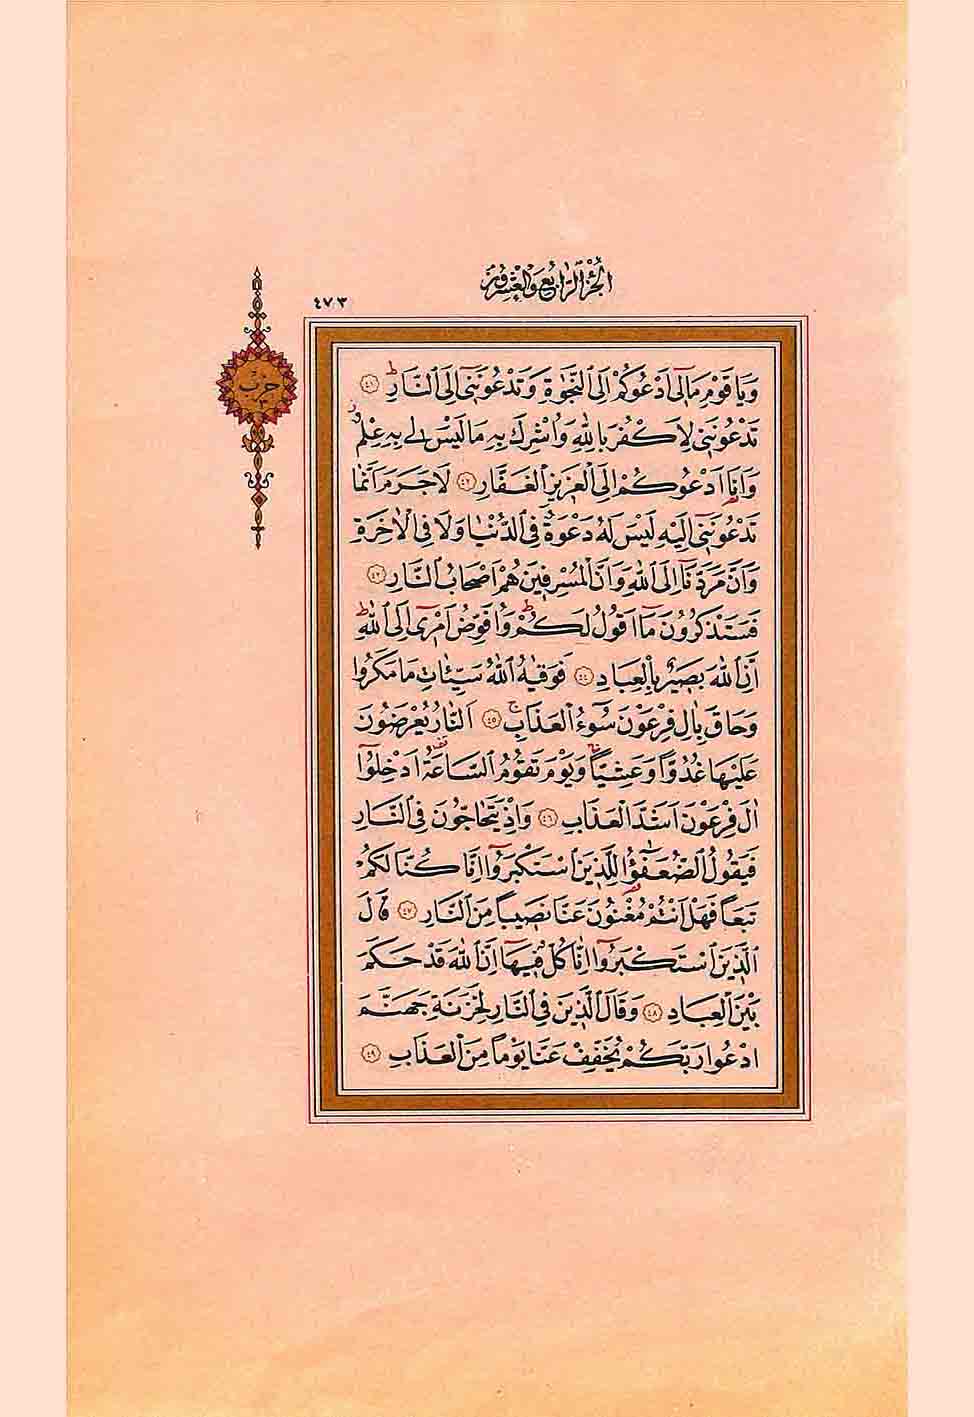 الجزء الرابع والعشرون
٤٧٣
حزب
وَيَا قَوْمِ مَا لِٓى اَدْعُوكُمْ اِلَى النَّجٰوةِ وَتَدْعُونَنِٓى اِلَى النَّارِۜ ﴿٤١﴾
تَدْعُونَنِى لِاَكْفُرَ بِاللّٰهِ وَاُشْرِكَ بِهِ مَا لَيْسَ لِى بِهِ عِلْمٌۘ
وَاَنَا۬ اَدْعُوكُمْ اِلَى الْعَزِيزِ الْغَفَّارِ ﴿٤٢﴾ لَا جَرَمَ اَنَّمَا
تَدْعُونَنِٓى اِلَيْهِ لَيْسَ لَهُ دَعْوَةٌ فِى الدُّنْيَا وَلَا فِى الْاٰخِرَةِ
وَاَنَّ مَرَدَّنَٓا اِلَى اللّٰهِ وَاَنَّ الْمُسْرِفِينَ هُمْ اَصْحَابُ النَّارِ ﴿٤٣﴾
فَسَتَذْكُرُونَ مَٓا اَقُولُ لَكُمْۜ وَاُفَوِّضُ اَمْرِٓى اِلَى اللّٰهِۜ
اِنَّ اللّٰهَ بَصِيرٌ بِالْعِبَادِ ﴿٤٤﴾ فَوَقٰيهُ اللّٰهُ سَيِّـَٔاتِ مَا مَكَرُوا
وَحَاقَ بِاٰلِ فِرْعَوْنَ سُٓوءُ الْعَذَابِۚ ﴿٤٥﴾ اَلنَّارُ يُعْرَضُونَ
عَلَيْهَا غُدُوًّا وَعَشِيًّاۚ وَيَوْمَ تَقُومُ السَّاعَةُ۠ اَدْخِلُٓوا
اٰلَ فِرْعَوْنَ اَشَدَّ الْعَذَابِ ﴿٤٦﴾ وَاِذْ يَتَحَٓاجُّونَ فِى النَّارِ
فَيَقُولُ الضُّعَفٰٓؤُا لِلَّذِينَ اسْتَكْبَرُٓوا اِنَّا كُنَّا لَكُمْ
تَبَعًا فَهَلْ اَنْتُمْ مُغْنُونَ عَنَّا نَصِيبًا مِنَ النَّارِ ﴿٤٧﴾ قَالَ
الَّذِينَ اسْتَكْبَرُٓوا اِنَّا كُلٌّ فِيهَٓا اِنَّ اللّٰهَ قَدْ حَكَمَ
بَيْنَ الْعِبَادِ ﴿٤٨﴾ وَقَالَ الَّذِينَ فِى النَّارِ لِخَزَنَةِ جَهَنَّمَ
ادْعُوا رَبَّكُمْ يُخَفِّفْ عَنَّا يَوْمًا مِنَ الْعَذَابِ ﴿٤٩﴾